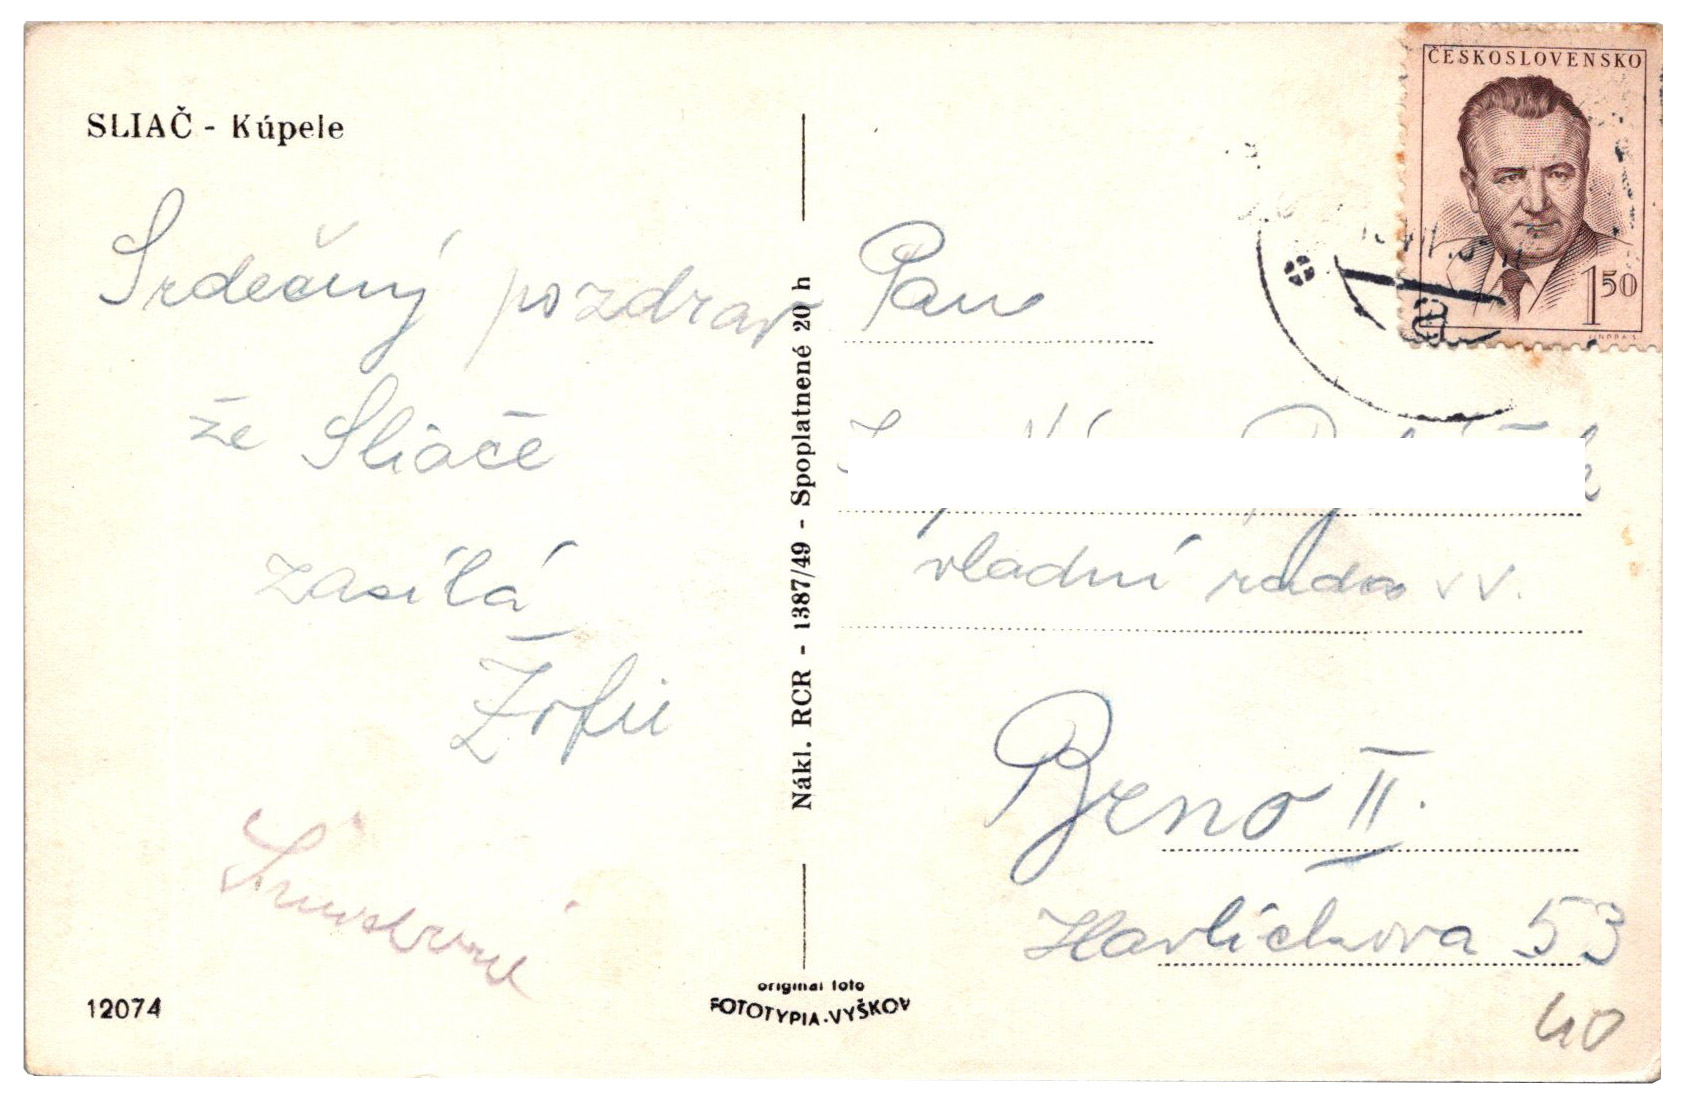 SLIAČ - Kúpele
Srdečný pozdrav
ze Sliače
zasílá
Žofie
12074
Nákl. RCR - 1387/49 - Spoplatnené 20 h
original foto
FOTOTYPIA-VYŠKOV
ČESKOSLOVENSKO
1 50
Pan
vladní rada v v.
Brno II.
Havlíčkova 53
40